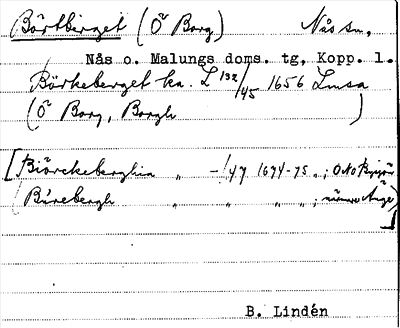 Börtberget (Ö Borg) Nås sn,
Nås o. Malungs doms. tg, Kopp. l.
Börkeberget ka. L 132/45 1656 Lmsa
(Ö Borg, Borgh )
[Biörckeberghia " -/47 1674-75 "; O No
(Birebergh " " " " ;
B. Lindén